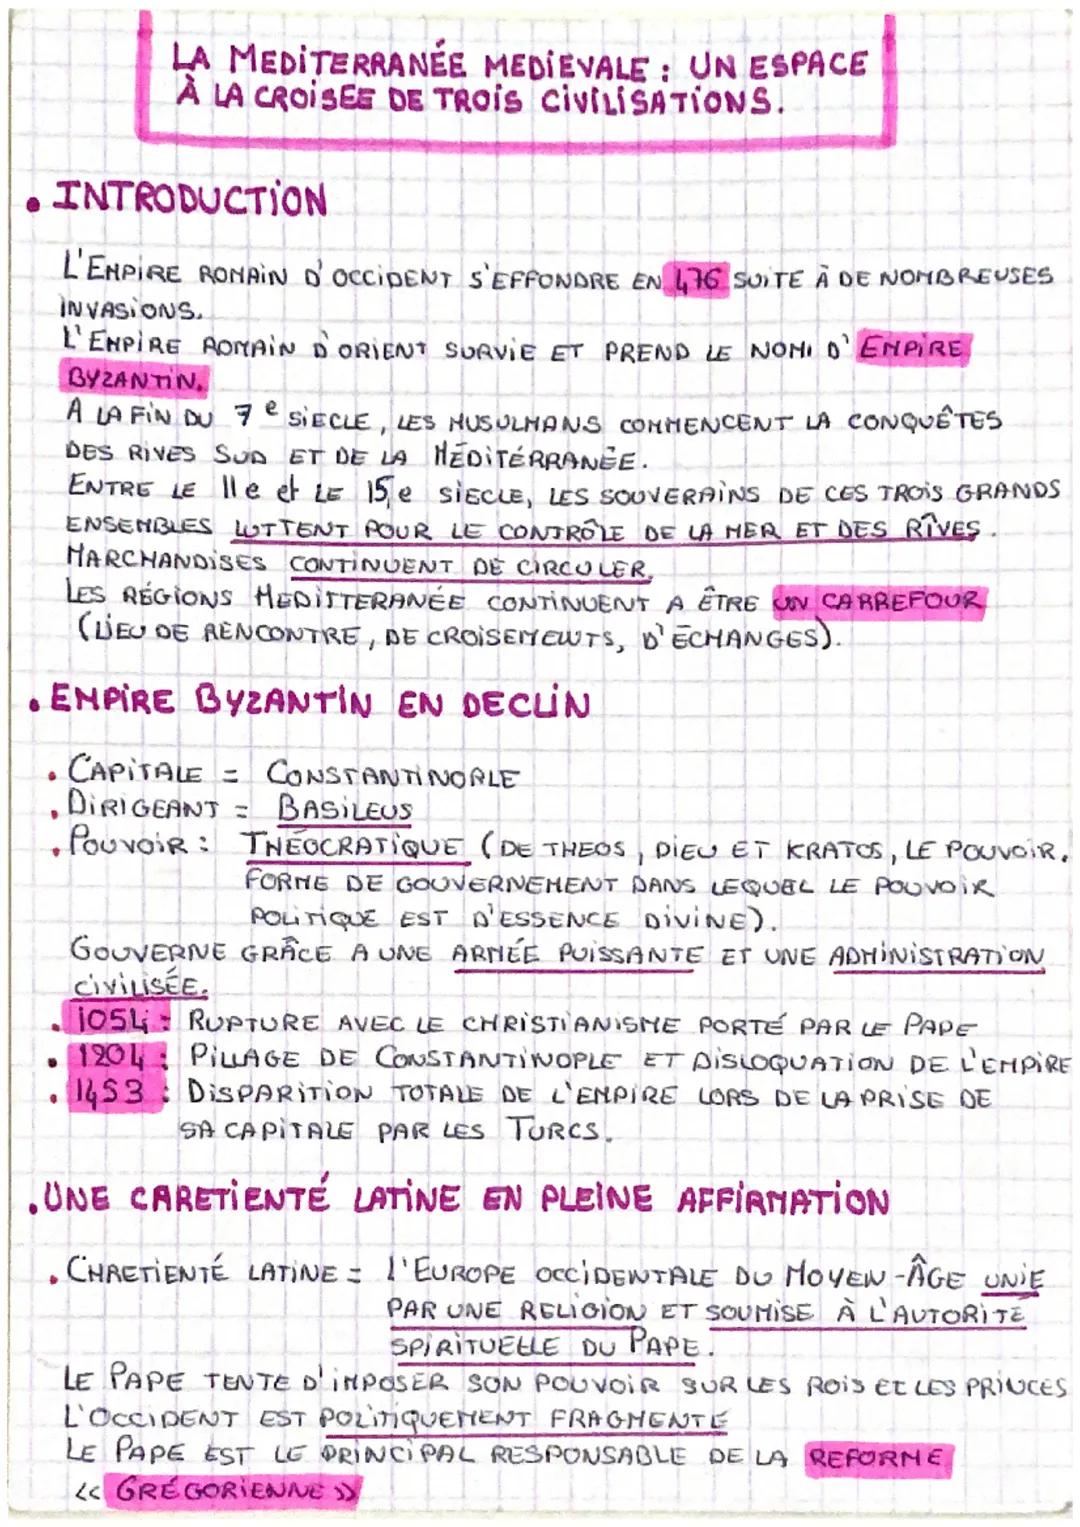 LA MEDITERRANÉE MEDIEVALE : UN ESPACE
À LA CROISEE DE TROIS CIVILISATIONS.
• INTRODUCTION
L'EMPIRE ROMAIN D'OCCIDENT S'EFFONDRE EN 476 SUITE À DE NOMBREUSES
INVASIONS.
L'EMPIRE ROMAIN D'ORIENT SURVIE ET PREND LE NOM D'EMPIRE
BYZANTIN.
A LA FIN DU 7e SIECLE, LES MUSULMANS COMMENCENT LA CONQUÊTES
DES RIVES SUD ET DE LA MÉDITÉRRANÉE.
ENTRE LE 11e et LE 15e SIECLE, LES SOUVERAINS DE CES TROIS GRANDS
ENSEMBLES LUTTENT POUR LE CONTRÔLE DE LA MER ET DES RÎVES.
MARCHANDISES CONTINUENT DE CIRCULER.
LES RÉGIONS MEDITTERANÉE CONTINUENT A ÊTRE UN CARREFOUR
(LIEU DE RENCONTRE, DE CROISEMENTS, D'ÉCHANGES).
• EMPIRE BYZANTIN EN DECLIN
• CAPITALE = CONSTANTINOPLE
• DIRIGEANT = BASILEUS
• POUVOIR : THÉOCRATIQUE (DE THEOS, DIEU ET KRATOS, LE POUVOIR.
FORME DE GOUVERNEMENT DANS LEQUEL LE POUVOIR
POLITIQUE EST D'ESSENCE DIVINE).
GOUVERNE GRÂCE A UNE ARMÉE PUISSANTE ET UNE ADMINISTRATION
CIVILISÉE.
• 1054 : RUPTURE AVEC LE CHRISTIANISME PORTÉ PAR LE PAPE
• 1204 : PILLAGE DE CONSTANTINOPLE ET DISLOQUATION DE L'EMPIRE
• 1453 : DISPARITION TOTALE DE L'EMPIRE LORS DE LA PRISE DE
SA CAPITALE PAR LES TURCS.
• UNE CARETIENTÉ LATINE EN PLEINE AFFIRMATION
• CHRETIENTÉ LATINE = L'EUROPE OCCIDENTALE DU MOYEN-ÂGE UNIE
PAR UNE RELIGION ET SOUMISE À L'AUTORITÉ
SPIRITUELLE DU PAPE.
LE PAPE TENTE D'IMPOSER SON POUVOIR SUR LES ROIS ET LES PRINCES
L'OCCIDENT EST POLITIQUEMENT FRAGMENTÉ
LE PAPE EST LE PRINCIPAL RESPONSABLE DE LA REFORME
<< GRÉGORIENNE >>